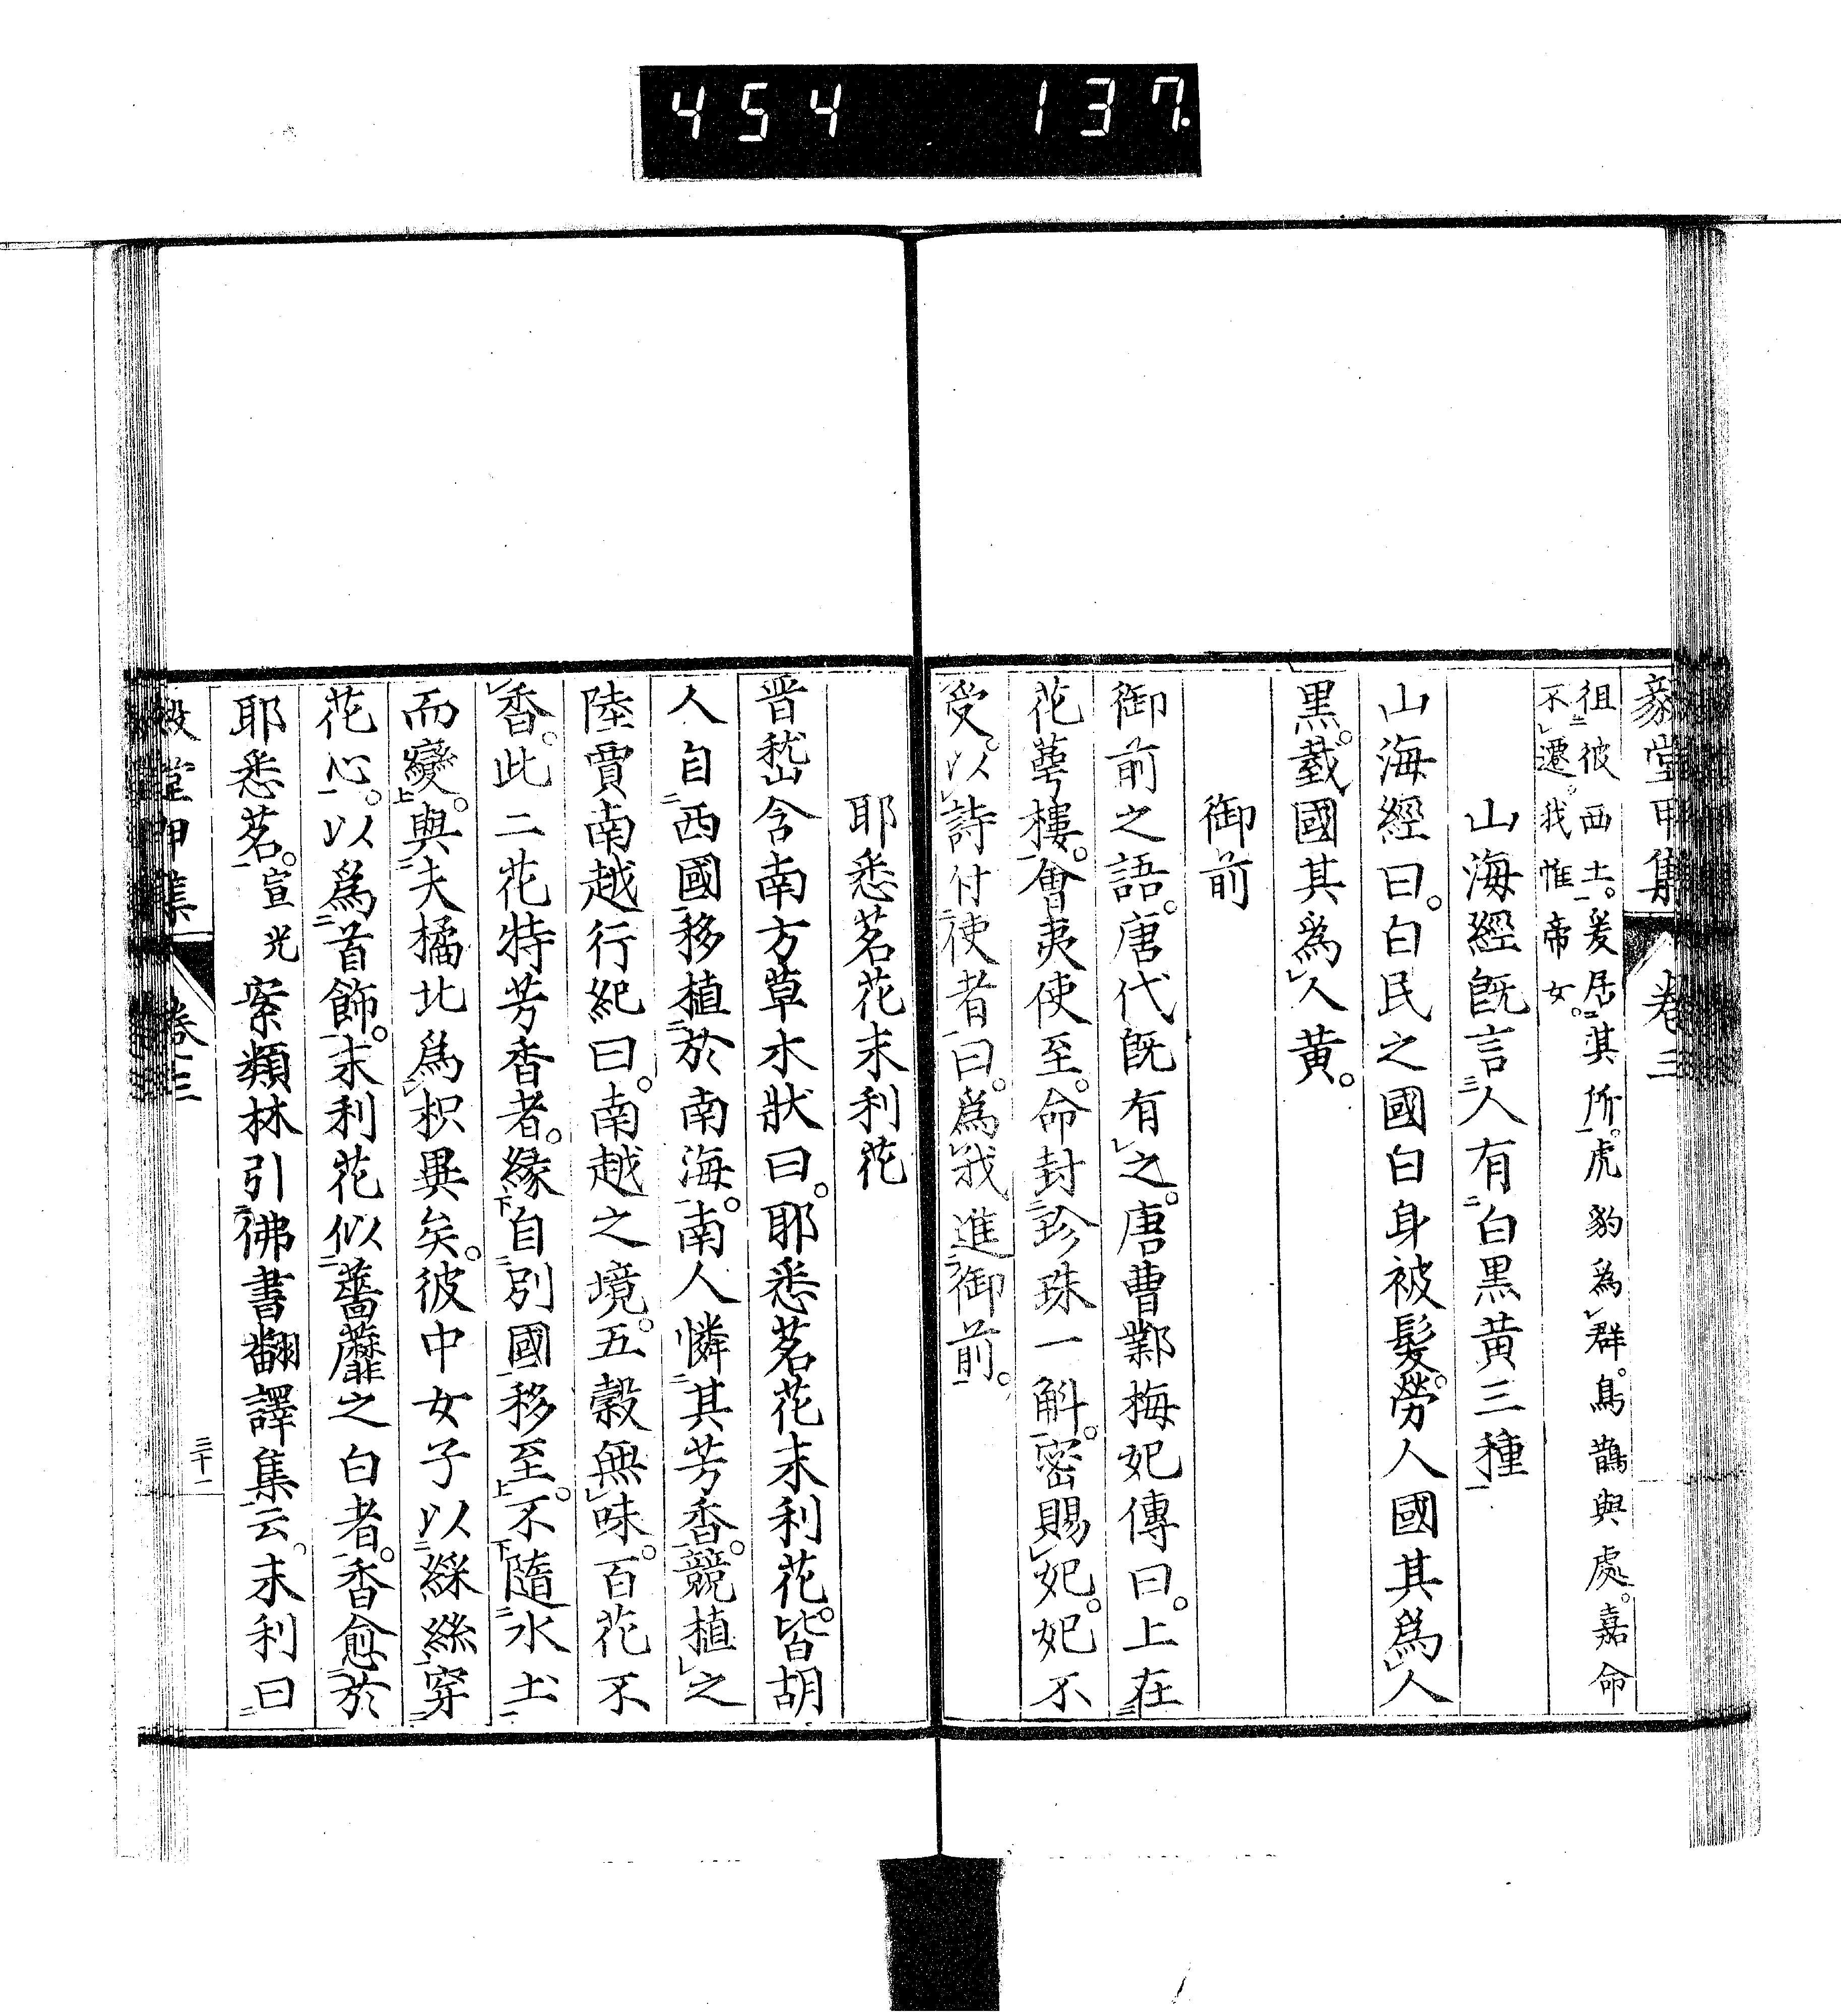 454 137.
徂彼西土。爰居其所。虎豹爲群。鳥鵲與處。嘉命
不遷。我惟帝女。
山海經既言人有白黒黄三種
山海經曰。白民之國白身被髮。勞人國其爲人
黒。臷國其爲人黄。
御前
御前之語。唐代既有之。唐曹鄴梅妃傳曰。上在
花萼樓。會夷使至。命封珍珠一斛。密賜妃。妃不
受。以詩付使者曰。爲我進御前。
耶悉茗花末利花
晋嵆含南方草木狀曰。耶悉茗花末利花。皆胡
人自西國移植於南海。南人憐其芳香。競植之
陸賈南越行紀曰。南越之境。五穀無味。百花不
香。此二花特芳香者。縁自別國移至。不隨水土
而變。與夫橘北爲枳異矣。彼中女子以綵絲穿
花心。以爲首飾。末利花似薔蘼之白者。香愈於
耶悉茗。宣光案類林引佛書翻譯集云。末利曰
堂甲集
卷三
三十二